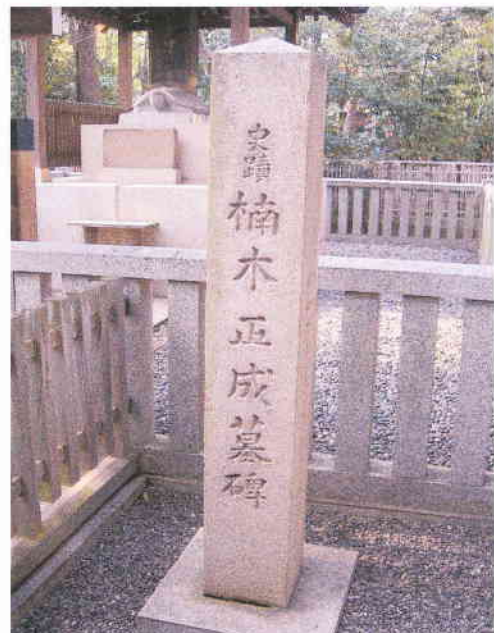 史蹟楠木正成墓碑